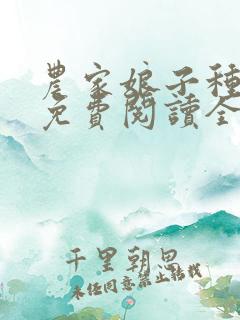 農家娘子種
免費閱讀全
千里朝思
未经同意禁止转载